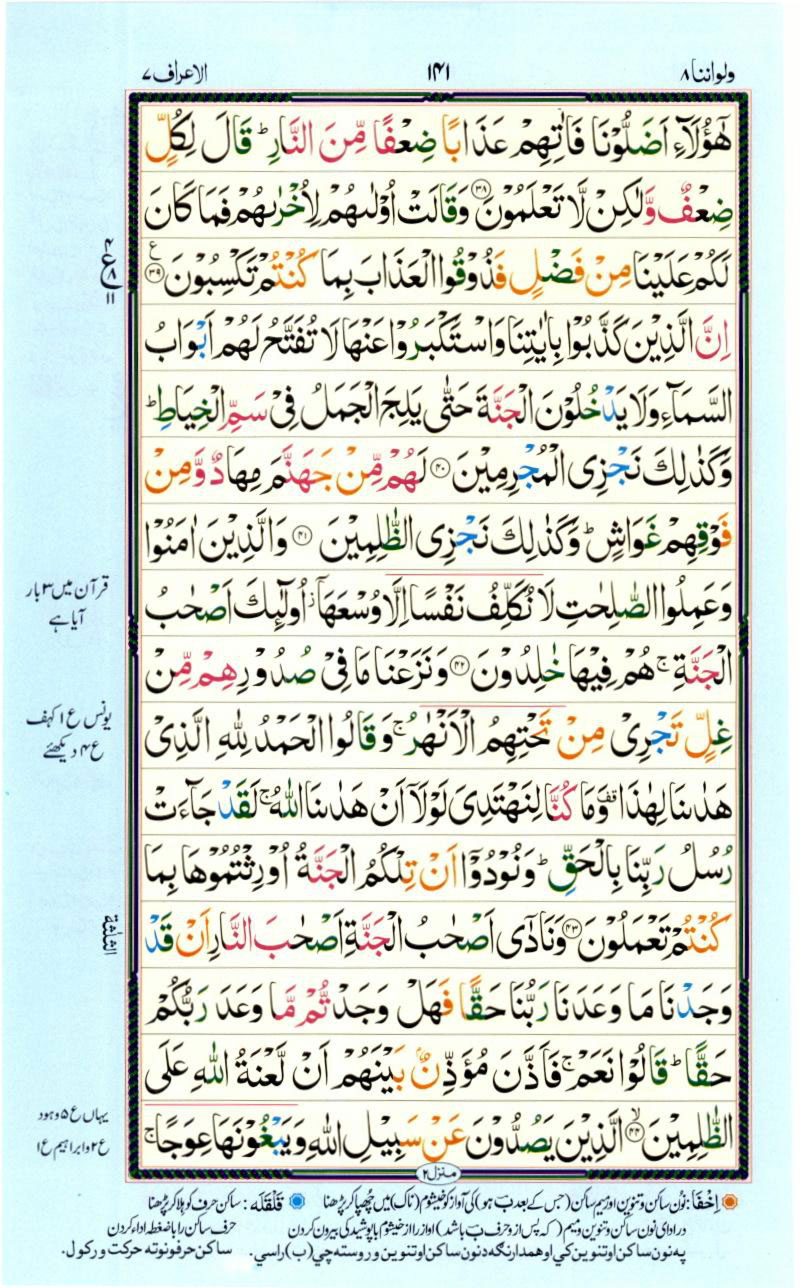 ولواننا ۸
۱۴۱
الاعراف ۷
هٰٓؤُلَآءِ اَضَلُّوْنَا فَاٰتِهِمْ عَذَابًا ضِعْفًا مِّنَ النَّارِ ؕ قَالَ لِكُلٍّ
ضِعْفٌ وَّلٰكِنْ لَّا تَعْلَمُوْنَ ﴿۳۸﴾ وَقَالَتْ اُوْلٰىهُمْ لِاُخْرٰىهُمْ فَمَا كَانَ
لَكُمْ عَلَيْنَا مِنْ فَضْلٍ فَذُوْقُوا الْعَذَابَ بِمَا كُنْتُمْ تَكْسِبُوْنَ ﴿۳۹﴾ ع
اِنَّ الَّذِيْنَ كَذَّبُوْا بِاٰيٰتِنَا وَاسْتَكْبَرُوْا عَنْهَا لَا تُفَتَّحُ لَهُمْ اَبْوَابُ
السَّمَآءِ وَلَا يَدْخُلُوْنَ الْجَنَّةَ حَتّٰى يَلِجَ الْجَمَلُ فِيْ سَمِّ الْخِيَاطِ ؕ
وَكَذٰلِكَ نَجْزِى الْمُجْرِمِيْنَ ﴿۴۰﴾ لَهُمْ مِّنْ جَهَنَّمَ مِهَادٌ وَّمِنْ
فَوْقِهِمْ غَوَاشٍ ؕ وَكَذٰلِكَ نَجْزِى الظّٰلِمِيْنَ ﴿۴۱﴾ وَالَّذِيْنَ اٰمَنُوْا
وَعَمِلُوا الصّٰلِحٰتِ لَا نُكَلِّفُ نَفْسًا اِلَّا وُسْعَهَآ ز اُولٰٓئِكَ اَصْحٰبُ
الْجَنَّةِ ۚ هُمْ فِيْهَا خٰلِدُوْنَ ﴿۴۲﴾ وَنَزَعْنَا مَا فِيْ صُدُوْرِهِمْ مِّنْ
غِلٍّ تَجْرِيْ مِنْ تَحْتِهِمُ الْاَنْهٰرُ ۚ وَقَالُوا الْحَمْدُ لِلّٰهِ الَّذِيْ
هَدٰىنَا لِهٰذَا قف وَمَا كُنَّا لِنَهْتَدِيَ لَوْلَآ اَنْ هَدٰىنَا اللّٰهُ ۚ لَقَدْ جَآءَتْ
رُسُلُ رَبِّنَا بِالْحَقِّ ؕ وَنُوْدُوْٓا اَنْ تِلْكُمُ الْجَنَّةُ اُوْرِثْتُمُوْهَا بِمَا
كُنْتُمْ تَعْمَلُوْنَ ﴿۴۳﴾ وَنَادٰٓى اَصْحٰبُ الْجَنَّةِ اَصْحٰبَ النَّارِ اَنْ قَدْ
وَجَدْنَا مَا وَعَدَنَا رَبُّنَا حَقًّا فَهَلْ وَجَدْتُّمْ مَّا وَعَدَ رَبُّكُمْ
حَقًّا ؕ قَالُوْا نَعَمْ ۚ فَاَذَّنَ مُؤَذِّنٌۢ بَيْنَهُمْ اَنْ لَّعْنَةُ اللّٰهِ عَلَى
الظّٰلِمِيْنَ ﴿۴۴﴾ لا الَّذِيْنَ يَصُدُّوْنَ عَنْ سَبِيْلِ اللّٰهِ وَيَبْغُوْنَهَا عِوَجًا ۚ
۴
ع ۸
۱۱
قرآن میں ۳ بار
آیا ہے
یونس ع ۱ کہف
ع ۴ دیکھئے
الثلٰثة
یہاں ع ۵ و ہود
ع ۲ و ابراہیم ع ۱
منزل ۲
اِخْفَا: نون ساکن و تنوین اور میم ساکن (جس کے بعد ب ہو) کی آواز کو خیشوم (ناک) میں چھپا کر پڑھنا
قَلْقَلَه: ساکن حرف کو ہلا کر پڑھنا
در ادای نون ساکن و تنوین و میم (که پس از و حرف ب باشد) آواز را از خیشوم با پوشیدگی بیرون کردن
حرف ساکن را با ضغطه ادا کردن
په نون ساکن او تنوین کي او همدارنګه د نون ساکن او تنوین و روسته چي (ب) راسي.
ساکن حرفونو ته حرکت ورکول.